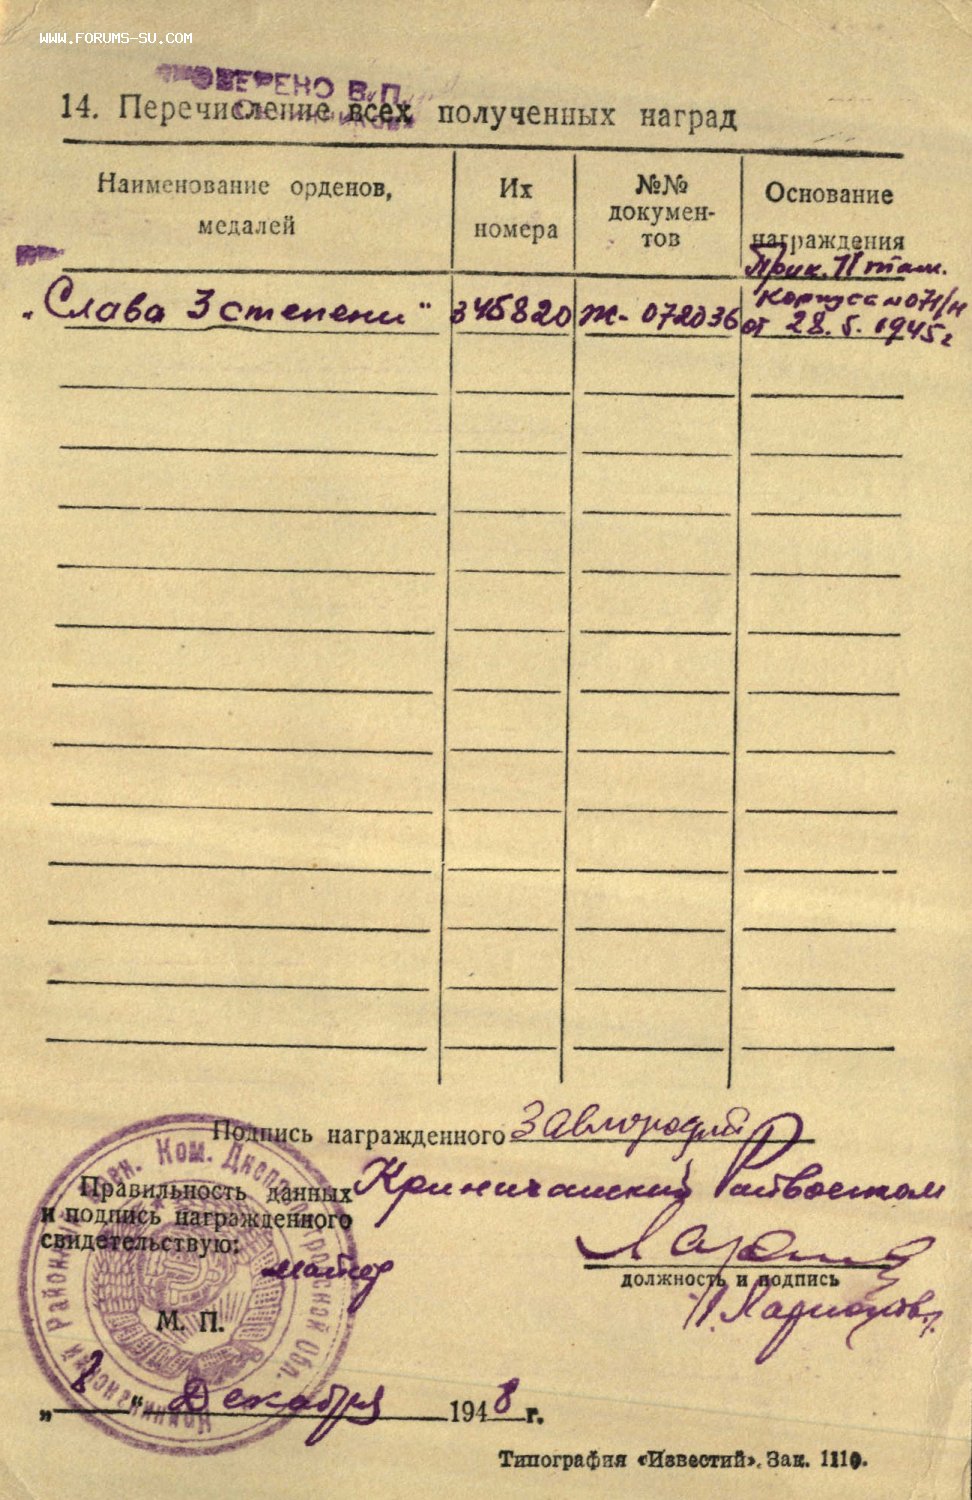 WWW.FORUMS-SU.COM
ПРОВЕРЕНО В.П.
14. Перечисление всех полученных наград
Наименование орденов, медалей
Их номера
№№ докумен-тов
Основание награждения
„Слава 3 степени" 345820 Ж- 072036 Прик. 11 тан. корпуса №071/н от 28.5.1945г
Подпись награжденного Завгородний
Правильность данных
и подпись награжденного
свидетельствую:
Криничанский Райвоенком
майор
должность и подпись
М. П.
Криничанский Районный Воен. Ком. Днепропетровской Обл.
„8" Декабря 1948 г.
Типография «Известий». Зак. 1110.